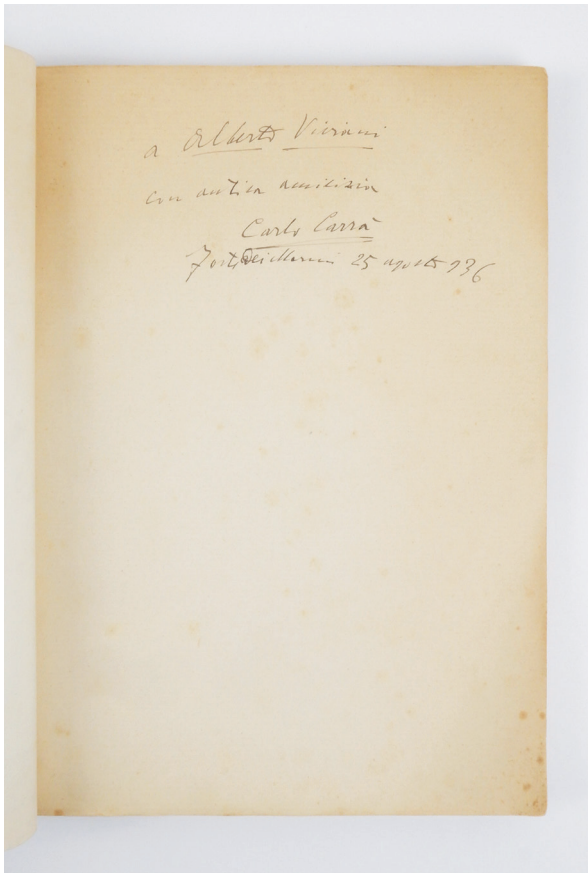 a Alberto Viviani
con antica amicizia
Carlo Carrà
Forte dei Marmi 25 agosto 936